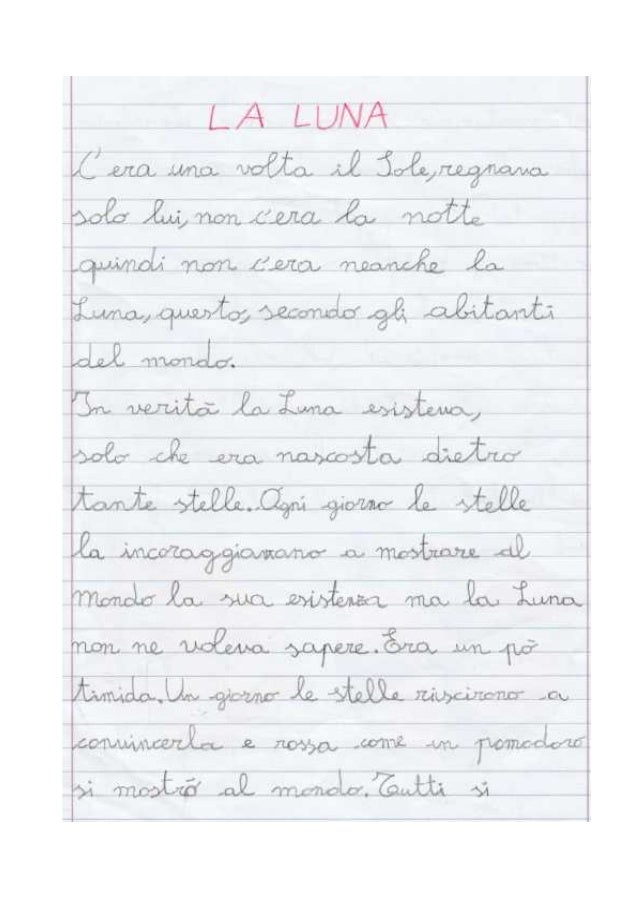 LA LUNA
C'era una volta il Sole, regnava
solo lui, non c'era la notte
quindi non c'era neanche la
Luna, questo, secondo gli abitanti
del mondo.
In verità la Luna esisteva,
solo che era nascosta dietro
tante stelle. Ogni giorno le stelle
la incoraggiavano a mostrare al
mondo la sua esistenza ma la Luna
non ne voleva sapere. Era un pò
timida. Un giorno le stelle riscirono a
convincerla e rossa come un pomodoro
si mostrò al mondo. Tutti si